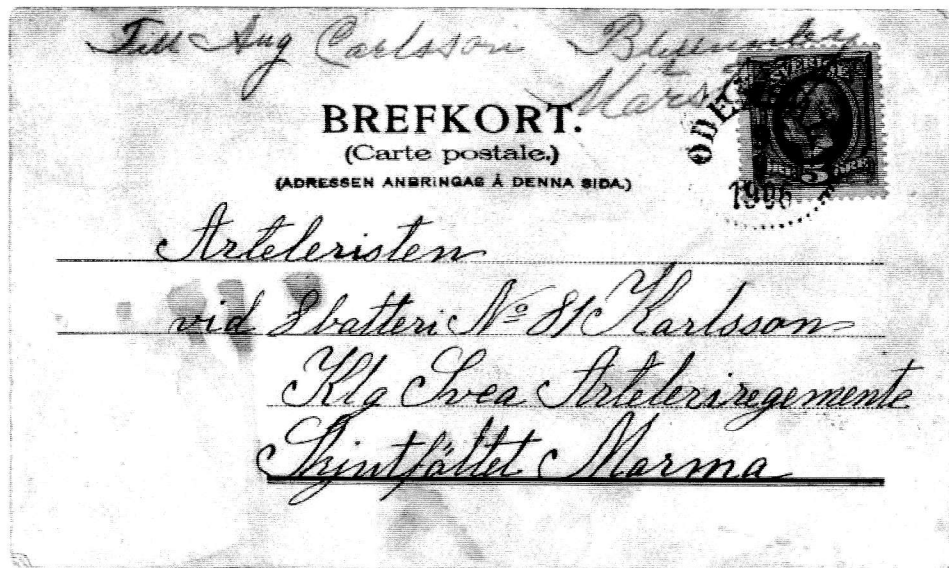 Till Aug Carlsson
BREFKORT.
(Carte postale.)
(ADRESSEN ANBRINGAS Å DENNA SIDA.)
SVERIGE
5
1906
Arteleristen
vid 8 batteri № 81 Karlsson
Klg Svea Arteleriregemente
Skjutfältet Marma